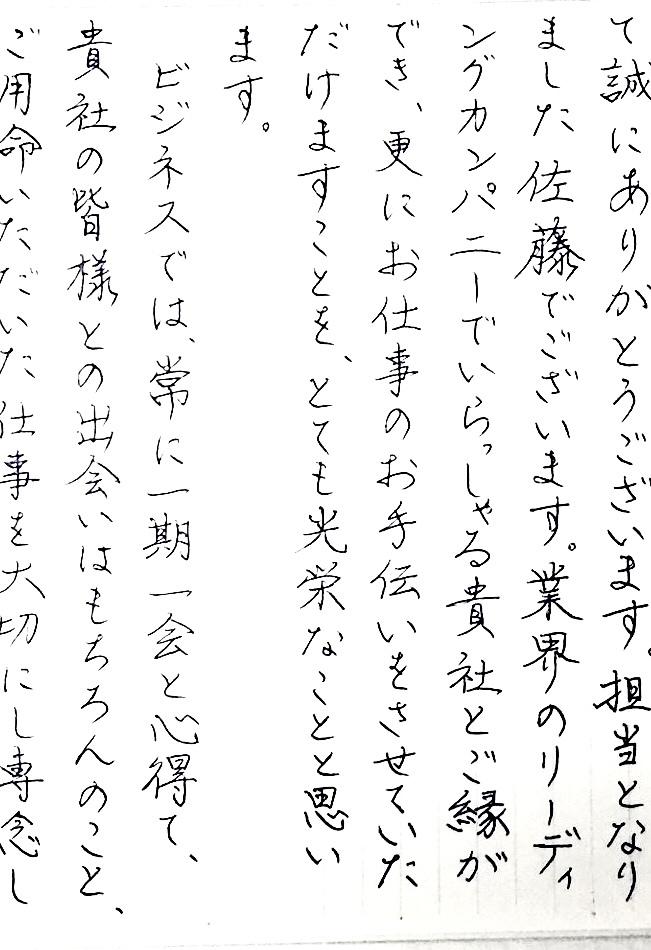 て誠にありがとうございます。担当となり
ました佐藤でございます。業界のリーディ
ングカンパニーでいらっしゃる貴社とご縁が
でき、更にお仕事のお手伝いをさせていた
だけますことを、とても光栄なことと思い
ます。
ビジネスでは、常に一期一会と心得て、
貴社の皆様との出会いはもちろんのこと、
ご用命いただいた仕事を大切にし専念し